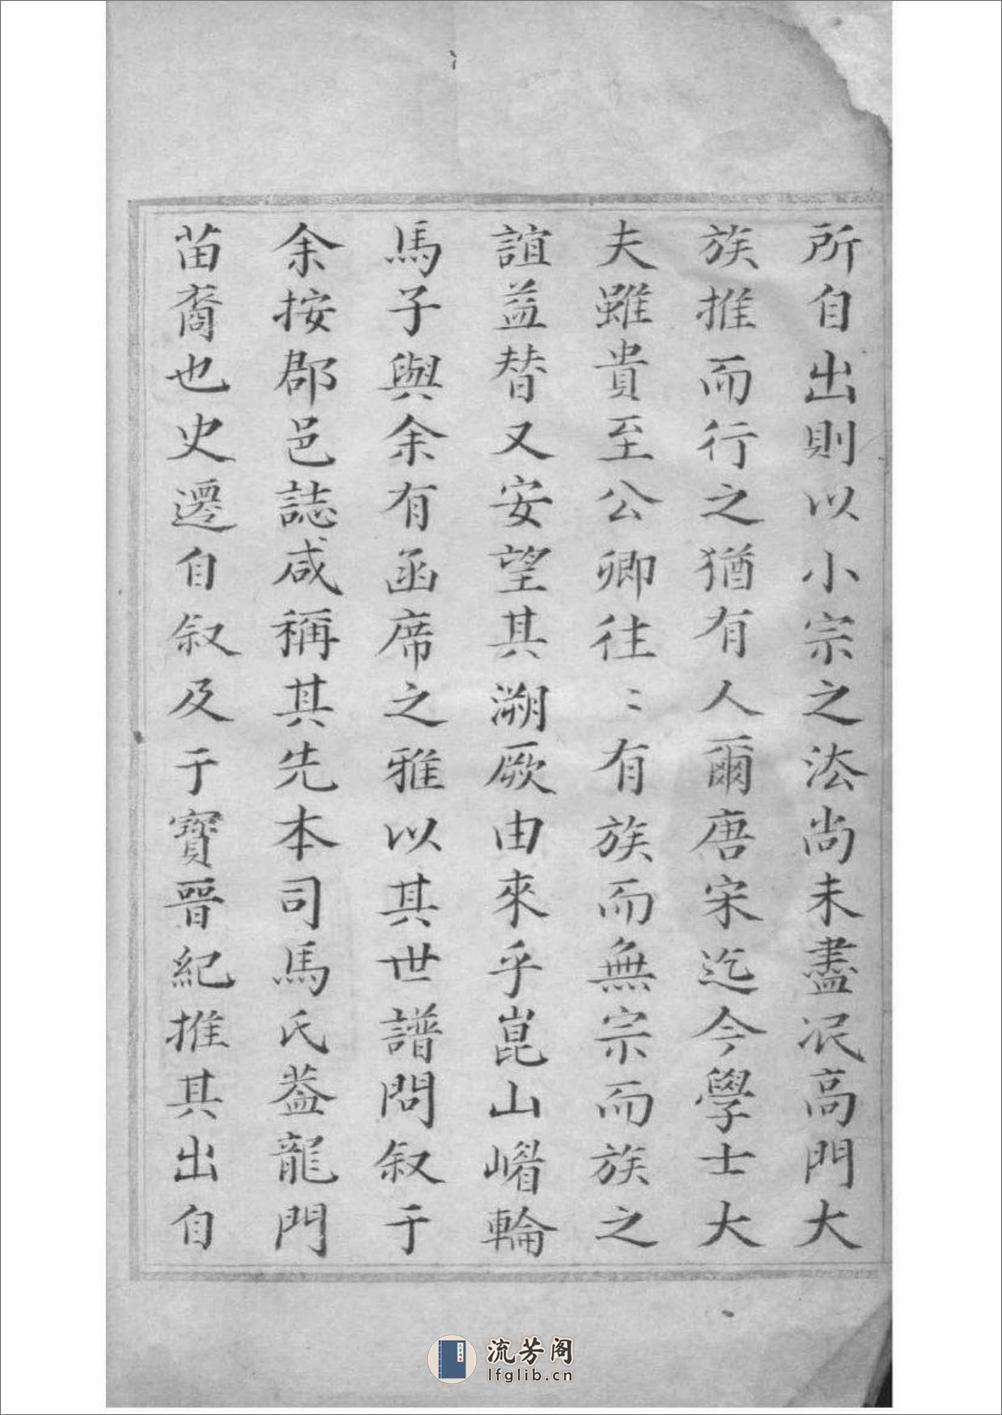 所自出則以小宗之法尚未盡泯高門大
族推而行之猶有人爾唐宋迄今學士大
夫雖貴至公卿往〻有族而無宗而族之
誼益替又安望其溯厥由來乎崑山嵴輪
馬子與余有函席之雅以其世譜問叙于
余按郡邑誌咸稱其先本司馬氏葢龍門
苗裔也史遷自叙及于寶晉紀推其出自
流芳阁
lfglib.cn